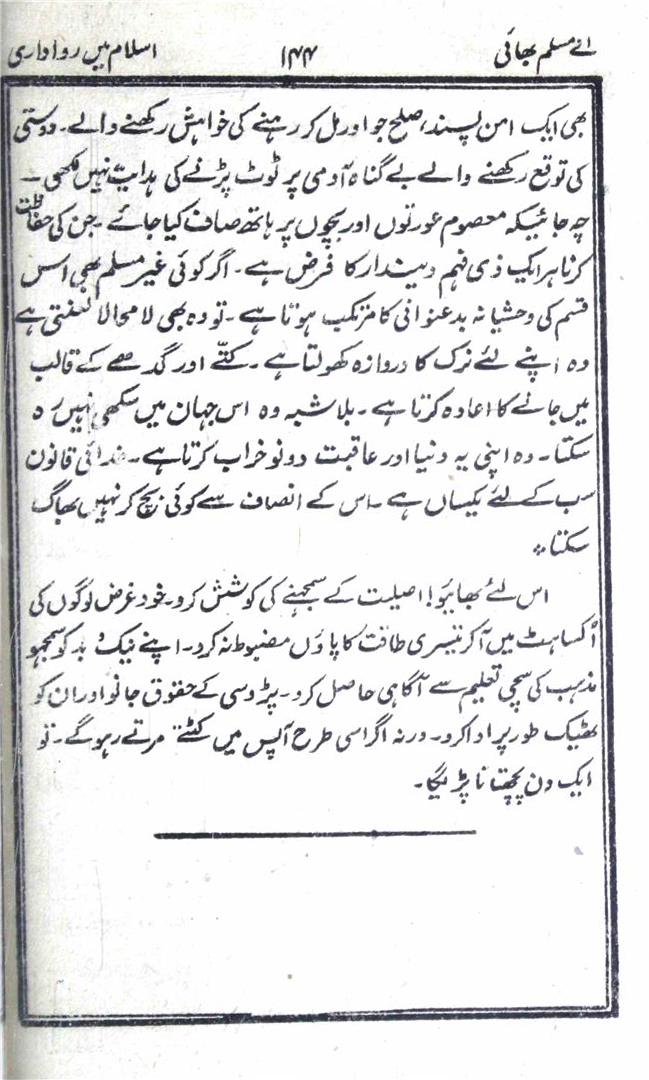 اے مسلم بھائی ۱۴۴ اسلام میں رواداری
بھی ایک امن پسند، صلح جو اور مل کر رہنے کی خواہش رکھنے والے۔ دوستی
کی توقع رکھنے والے بے گناہ آدمی پر ٹوٹ پڑنے کی ہدایت نہیں لکھی۔
چہ جائیکہ معصوم عورتوں اور بچوں پر ہاتھ صاف کیا جائے۔ جن کی حفاظت
کرنا ہر ایک ذی فہم دیندار کا فرض ہے۔ اگر کوئی غیر مسلم بھی اس
قسم کی وحشیانہ بدعنوانی کا مرتکب ہوتا ہے۔ تو وہ بھی لامحالا لعنتی ہے
وہ اپنے لئے نرک کا دروازہ کھولتا ہے۔ کتّے اور گدھے کے قالب
میں جانے کا اعادہ کرتا ہے۔ بلاشبہ وہ اس جہان میں سکھی نہیں رہ
سکتا۔ وہ اپنی یہ دنیا اور عاقبت دونو خراب کرتا ہے۔ خدائی قانون
سب کے لئے یکساں ہے۔ اس کے انصاف سے کوئی بچ کر نہیں بھاگ
سکتا؞
اس لئے بھائیو! اصیلت کے سمجھنے کی کوشش کرو۔ خود غرض لوگوں کی
اُکساہٹ میں آکر تیسری طاقت کا پاؤں مضبوط نہ کرو۔ اپنے نیک و بد کو سمجھو
مذہب کی سچی تعلیم سے آگاہی حاصل کرو۔ پڑوسی کے حقوق جانو اور ان کو
ٹھیک طور پر ادا کرو۔ ورنہ اگر اسی طرح آپس میں کٹتے مرتے رہو گے۔ تو
ایک دن پچھتانا پڑیگا۔